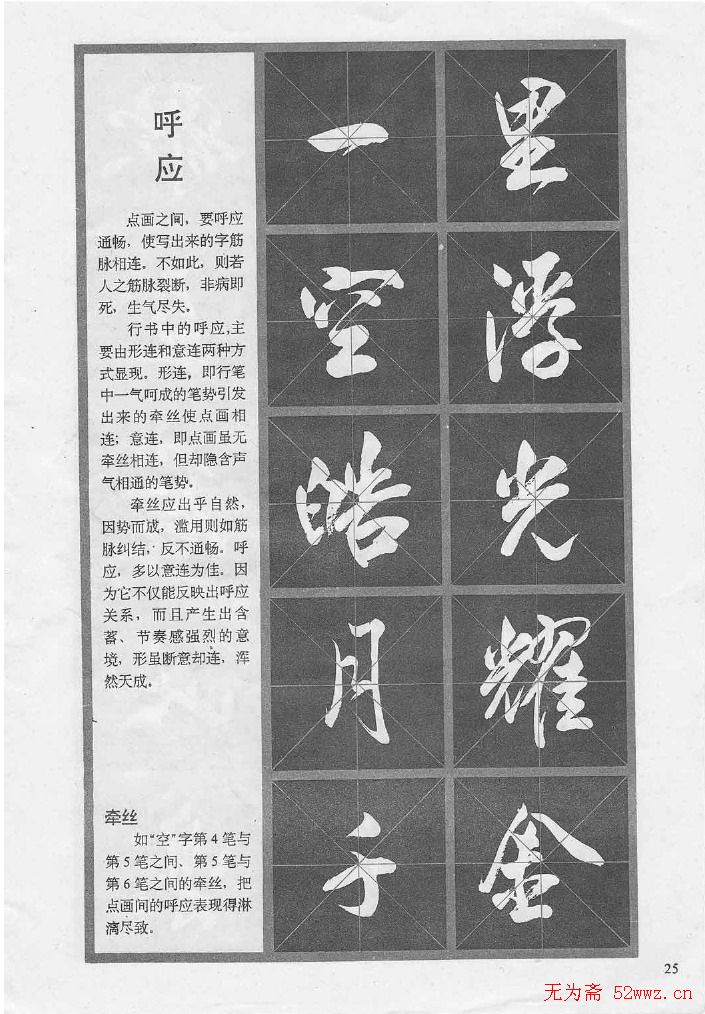 呼
应
点画之间，要呼应
通畅，使写出来的字筋
脉相连。不如此，则若
人之筋脉裂断，非病即
死，生气尽失。
行书中的呼应，主
要由形连和意连两种方
式显现。形连，即行笔
中一气呵成的笔势引发
出来的牵丝使点画相
连；意连，即点画虽无
牵丝相连，但却隐含声
气相通的笔势。
牵丝应出乎自然，
因势而成，滥用则如筋
脉纠结，反不通畅。呼
应，多以意连为佳。因
为它不仅能反映出呼应
关系，而且产生出含
蓄、节奏感强烈的意
境，形虽断意却连，浑
然天成。
牵丝
如“空”字第4笔与
第5笔之间、第5笔与
第6笔之间的牵丝，把
点画间的呼应表现得淋
漓尽致。
一空皓月千
里浮光耀金
25
无为斋 52wwz.cn